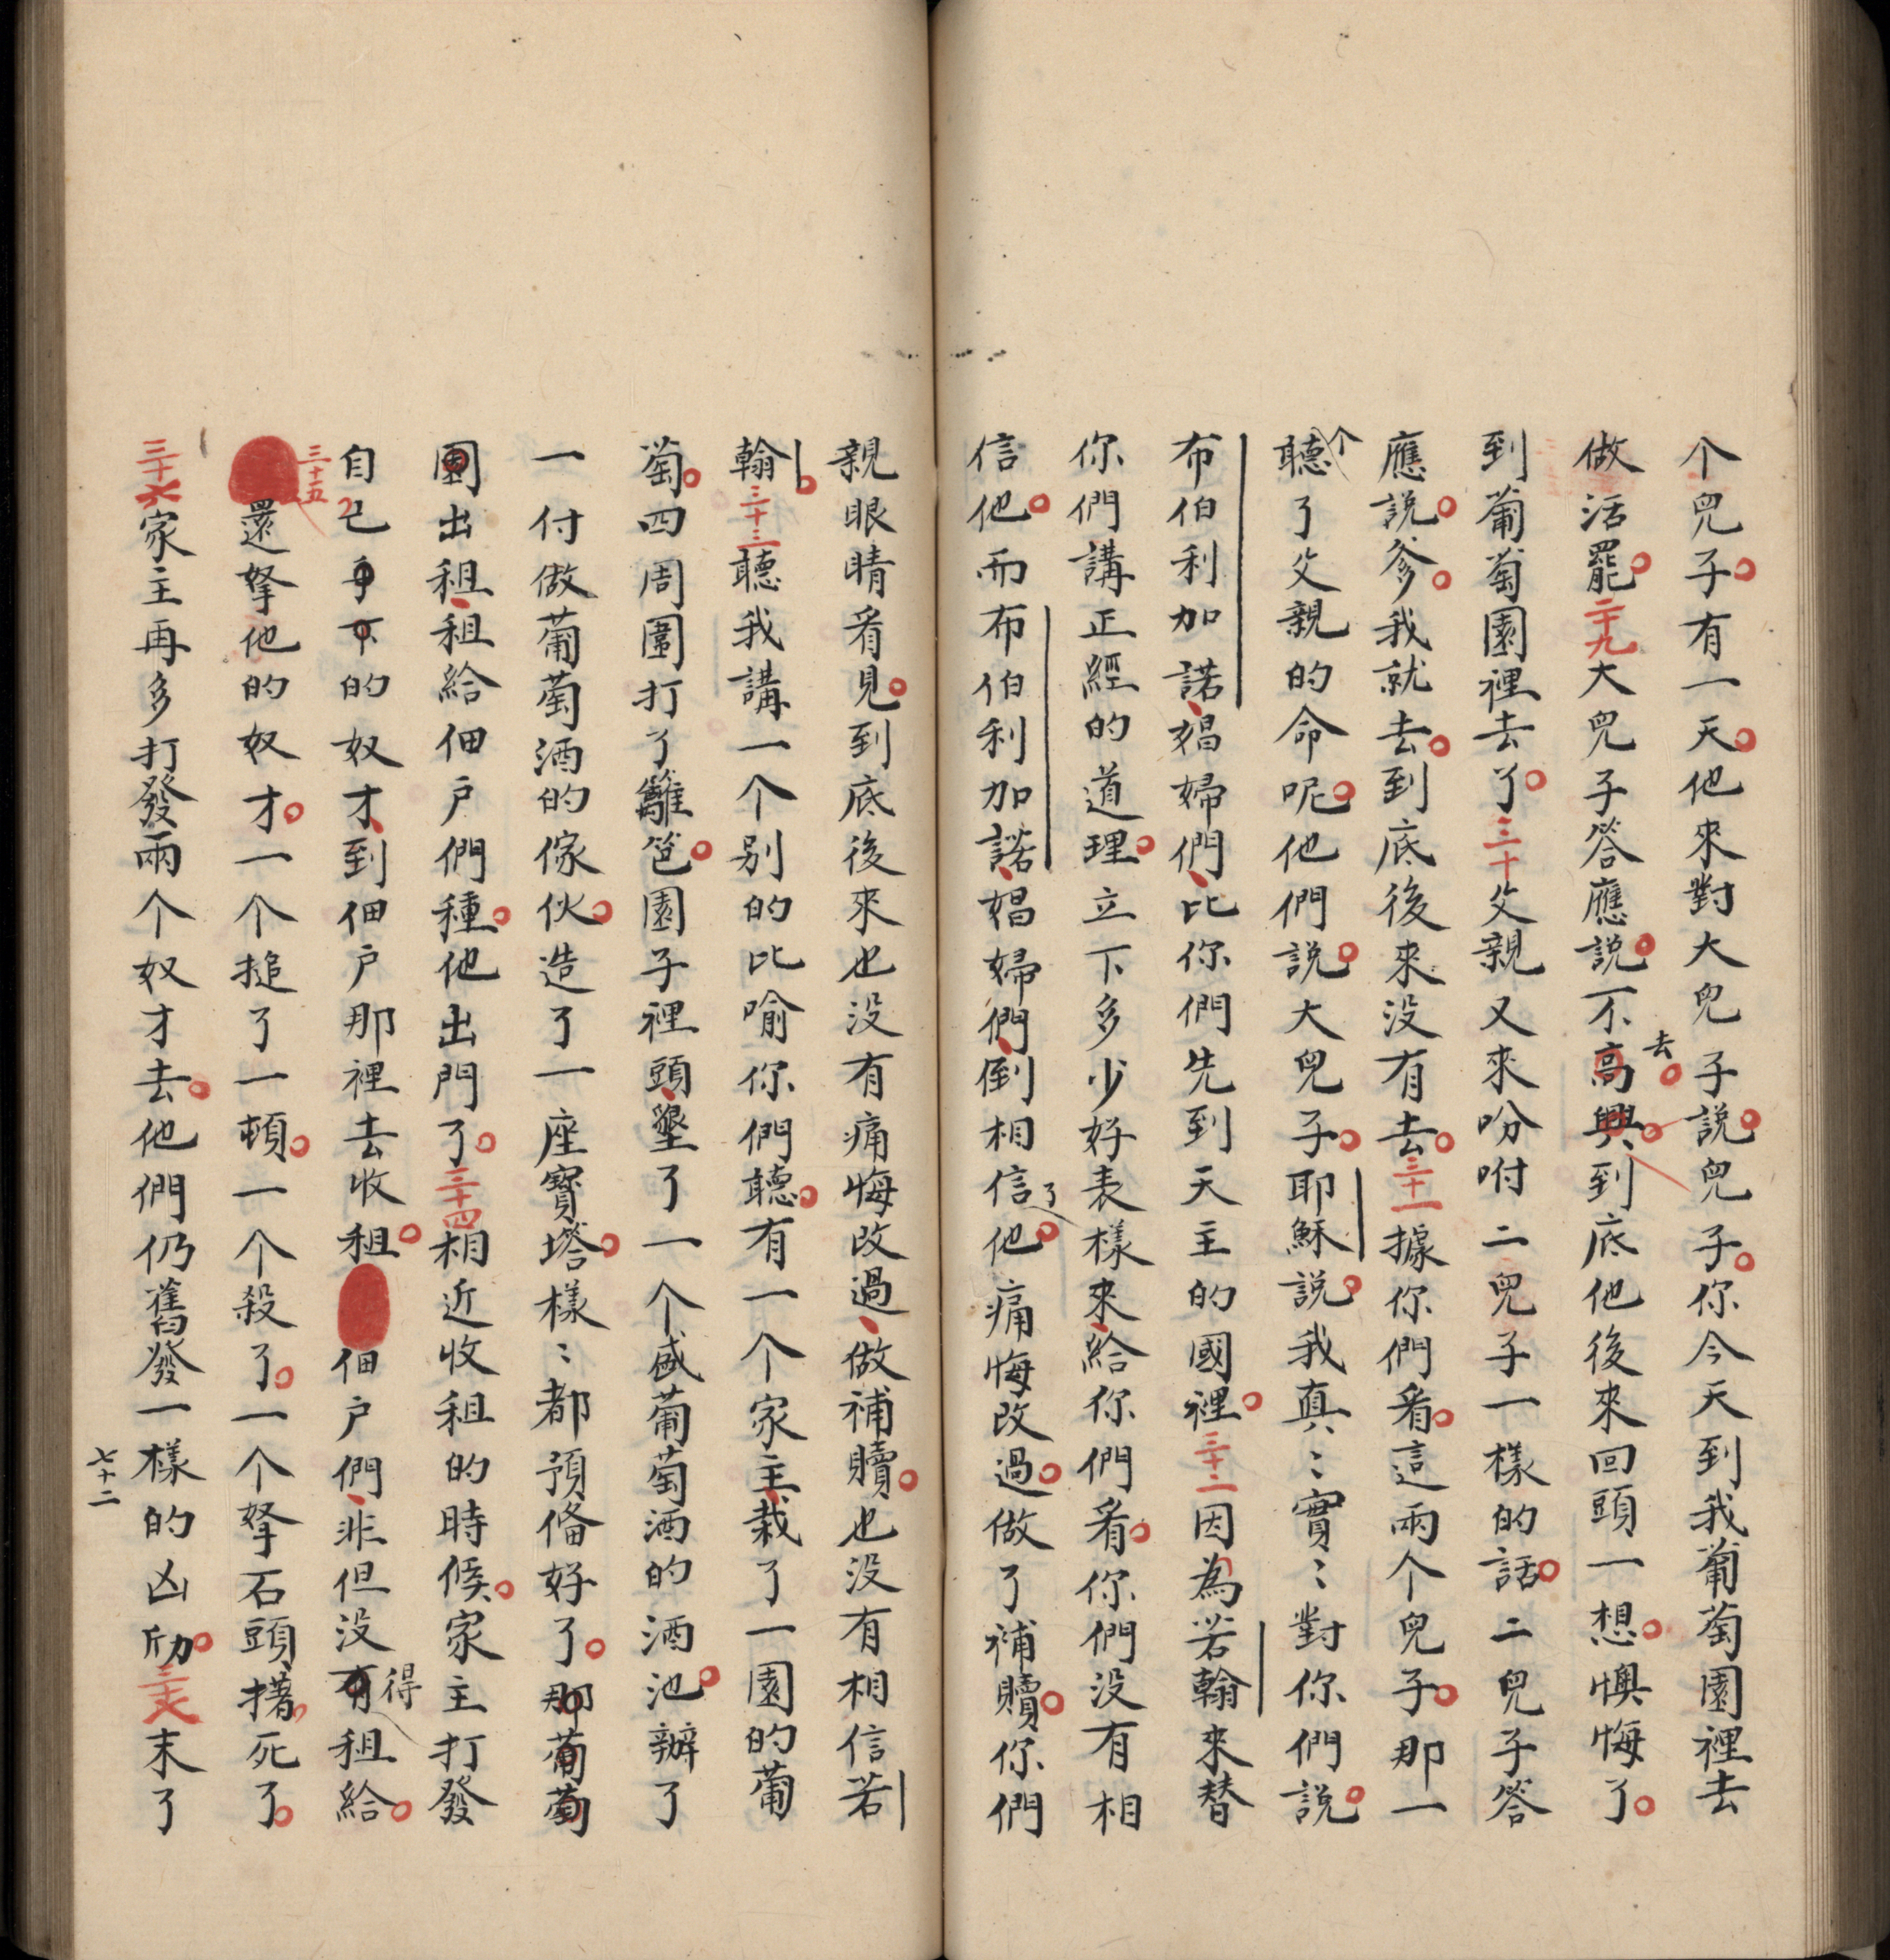 个兒子有一天他來對大兒子說兒子你今天到我葡萄園裡去
做活罷二十九大兒子答應說不高興去到底他後來回頭一想懊悔了
到葡萄園裡去了三十父親又來吩咐二兒子一樣的話二兒子答
應說爹我就去到底後來没有去三十一據你們看這兩个兒子那一
个聽了父親的命呢他們說大兒子耶穌說我真〻實〻對你們說
布伯利加諾娼婦們比你們先到天主的國裡三十二因為若翰來替
你們講正經的道理立下多少好表樣來給你們看你們没有相
信他而布伯利加諾娼婦們倒相信了他痛悔改過做了補贖你們
親眼睛看見到底後來也没有痛悔改過做補贖也没有相信若
翰三十三聽我講一个别的比喻你們聽有一个家主栽了一園的葡
萄四周圍打了籬笆園子裡頭墾了一个盛葡萄酒的酒池辦了
一付做葡萄酒的傢伙造了一座寳塔樣〻都預俻好了那葡萄
園出租租給佃户們種他出門了三十四相近收租的時候家主打發
自己手下的奴才到佃户那裡去收租佃户們非但没有得租給
三十五還拏他的奴才一个搥了一頓一个殺了一个拏石頭撦死了
三十六家主再多打發兩个奴才去他們仍舊發一樣的凶劢三十七末了
七十二